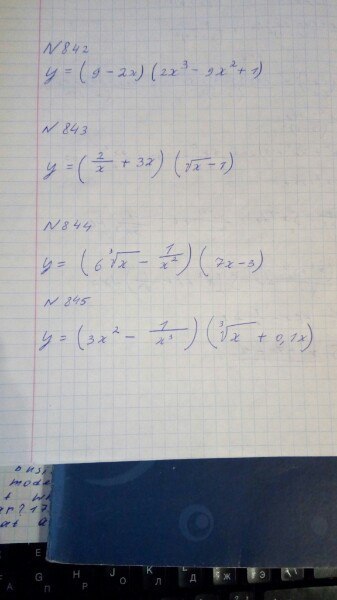 N 842
y = (9 - 2x) (2x³ - 9x² + 1)
N 843
y = (2/x + 3x) (√x - 1)
N 844
y = (6 ∛x - 1/x²) (7x - 3)
N 845
y = (3x² - 1/x³) (∛x + 0,1x)
mode
E R
G H J K L
А П Р О Л Д Ж Э